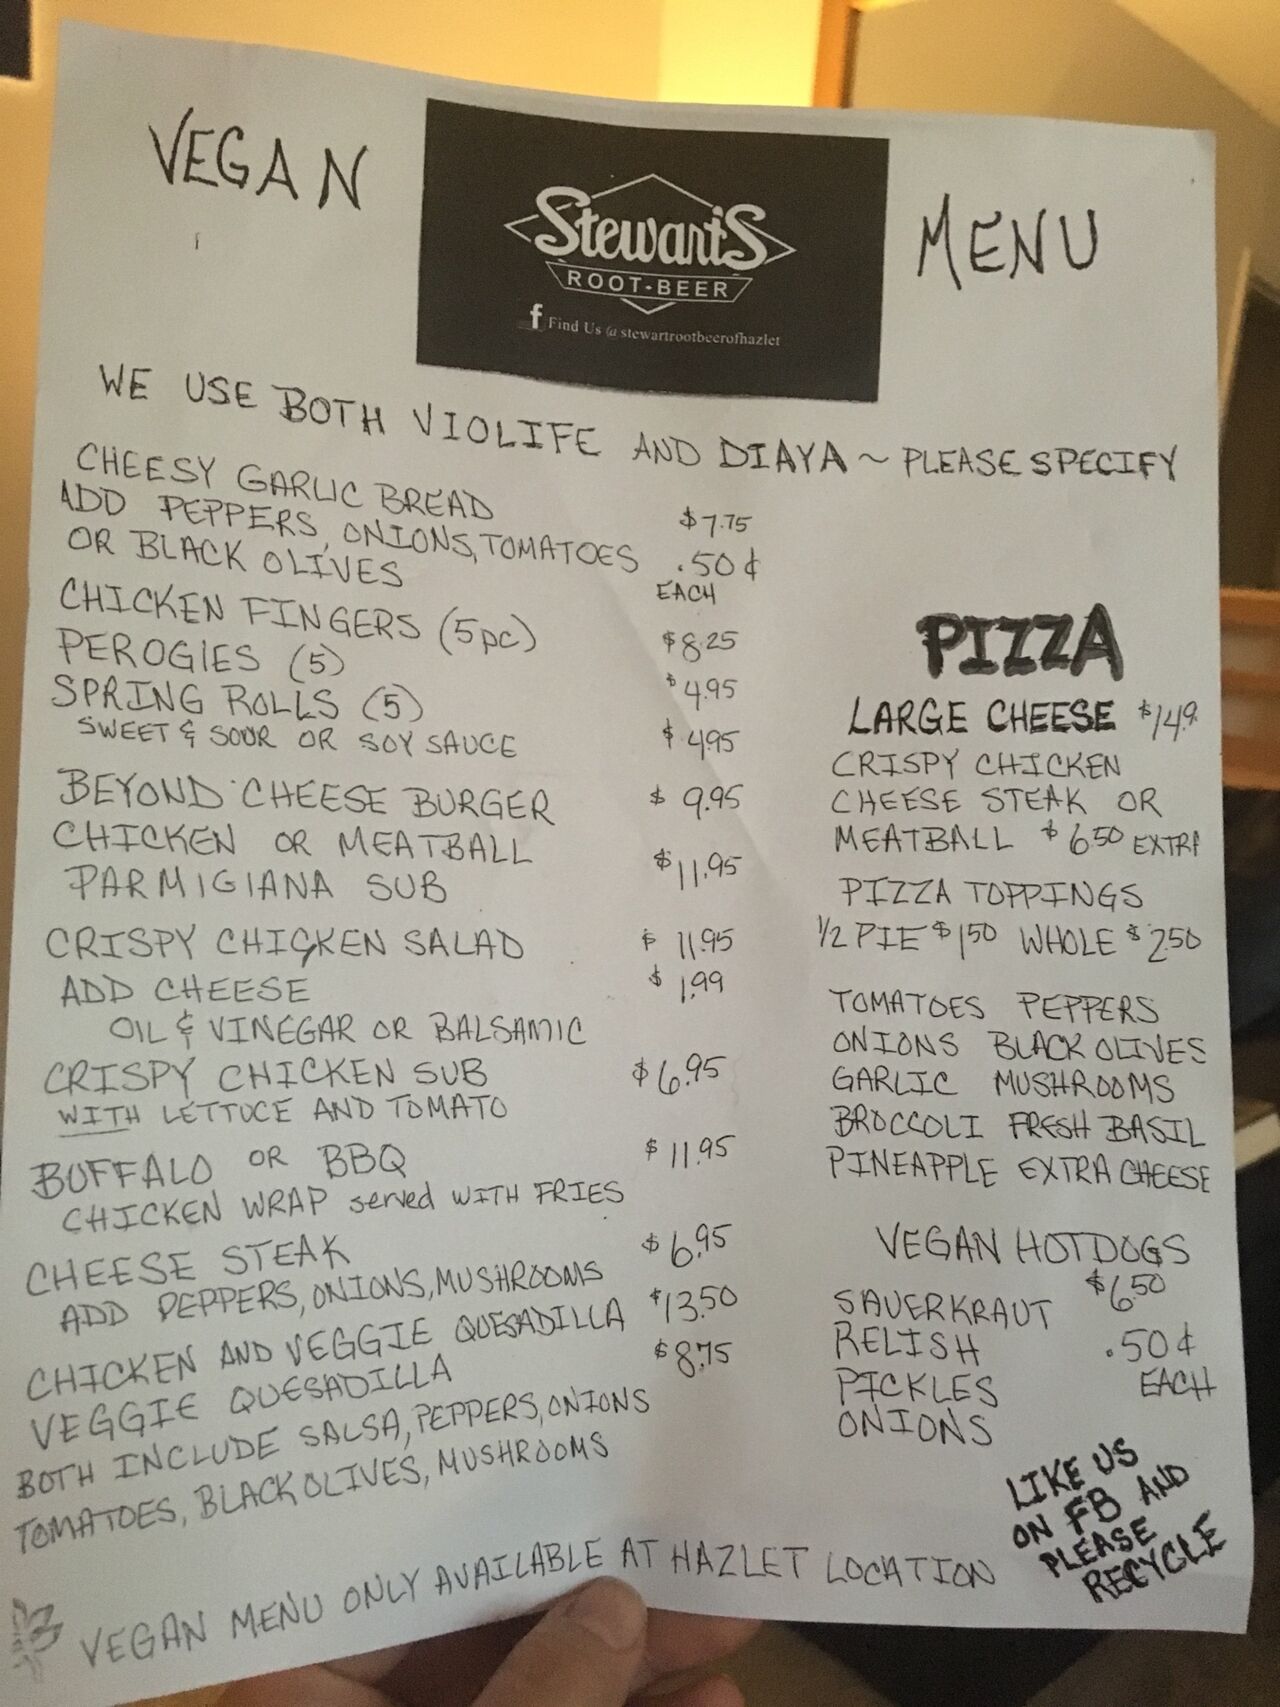 VEGAN MENU
Stewart's
ROOT-BEER
f Find Us @ stewartrootbeerofhazlet
WE USE BOTH VIOLIFE AND DIAYA ~ PLEASE SPECIFY
CHEESY GARLIC BREAD $7.75
ADD PEPPERS, ONIONS, TOMATOES .50¢
OR BLACK OLIVES EACH
CHICKEN FINGERS (5pc) $8.25
PEROGIES (5) $4.95
SPRING ROLLS (5) $4.95
SWEET & SOUR OR SOY SAUCE
BEYOND CHEESE BURGER $9.95
CHICKEN OR MEATBALL $11.95
PARMIGIANA SUB
CRISPY CHICKEN SALAD $11.95
ADD CHEESE $1.99
OIL & VINEGAR OR BALSAMIC
CRISPY CHICKEN SUB $6.95
WITH LETTUCE AND TOMATO
BUFFALO OR BBQ $11.95
CHICKEN WRAP served WITH FRIES
CHEESE STEAK $6.95
ADD PEPPERS, ONIONS, MUSHROOMS
CHICKEN AND VEGGIE QUESADILLA $13.50
VEGGIE QUESADILLA $8.75
BOTH INCLUDE SALSA, PEPPERS, ONIONS
TOMATOES, BLACK OLIVES, MUSHROOMS
PIZZA
LARGE CHEESE
CRISPY CHICKEN
CHEESE STEAK OR
MEATBALL $6.50 EXTRA
PIZZA TOPPINGS
1/2 PIE $1.50 WHOLE $2.50
TOMATOES PEPPERS
ONIONS BLACK OLIVES
GARLIC MUSHROOMS
BROCCOLI FRESH BASIL
PINEAPPLE EXTRA CHEESE
VEGAN HOTDOGS
$6.50
SAUERKRAUT
RELISH .50¢
PICKLES EACH
ONIONS
LIKE US
ON FB AND
PLEASE
RECYCLE
VEGAN MENU ONLY AVAILABLE AT HAZLET LOCATION